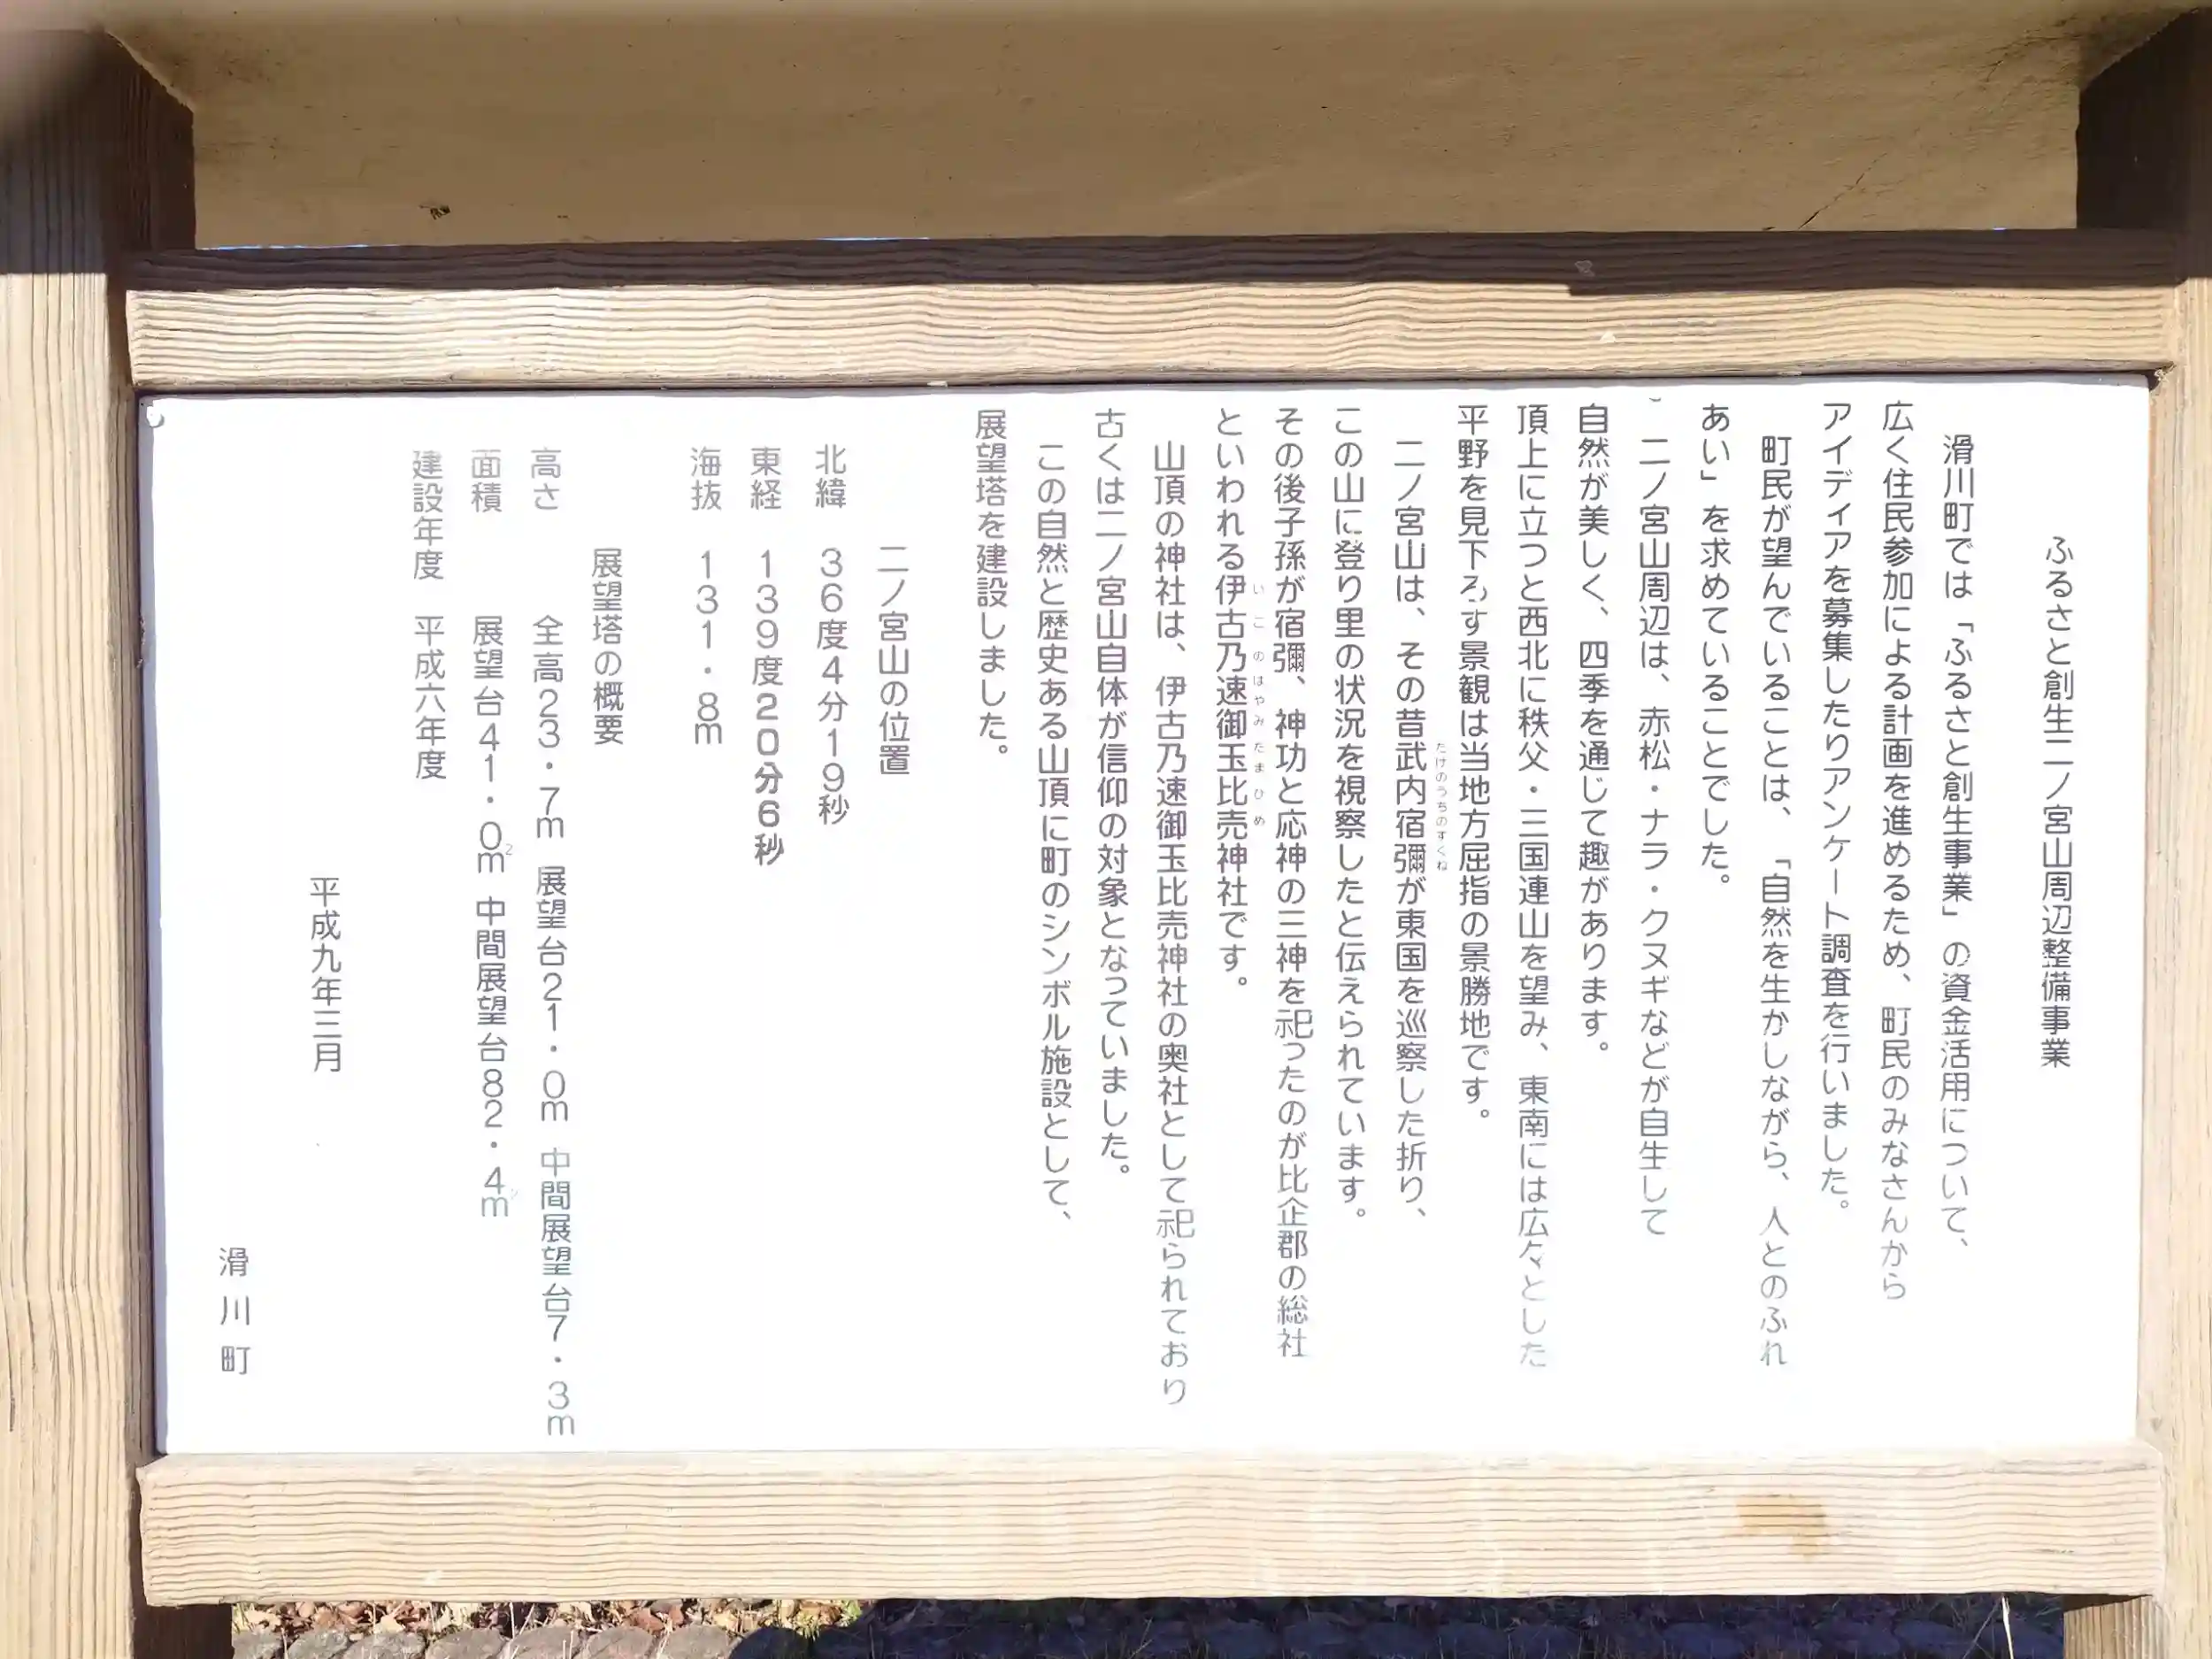 ふるさと創生二ノ宮山周辺整備事業
滑川町では「ふるさと創生事業」の資金活用について、
広く住民参加による計画を進めるため、町民のみなさんから
アイディアを募集したりアンケート調査を行いました。
町民が望んでいることは、「自然を生かしながら、人とのふれ
あい」を求めていることでした。
二ノ宮山周辺は、赤松・ナラ・クヌギなどが自生して
自然が美しく、四季を通じて趣があります。
頂上に立つと西北に秩父・三国連山を望み、東南には広々とした
平野を見下ろす景観は当地方屈指の景勝地です。
二ノ宮山は、その昔武内宿彌が東国を巡察した折り、
たけのうちのすくね
この山に登り里の状況を視察したと伝えられています。
その後子孫が宿彌、神功と応神の三神を祀ったのが比企郡の総社
といわれる伊古乃速御玉比売神社です。
いこのはやみたまひめ
山頂の神社は、伊古乃速御玉比売神社の奥社として祀られており
古くは二ノ宮山自体が信仰の対象となっていました。
この自然と歴史ある山頂に町のシンボル施設として、
展望塔を建設しました。
二ノ宮山の位置
北緯 36度4分19秒
東経 139度20分6秒
海抜 131・8m
展望塔の概要
高さ 全高23・7m 展望台21・0m 中間展望台7・3m
面積 展望台41・0m² 中間展望台82・4m²
建設年度 平成六年度
平成九年三月
滑川町